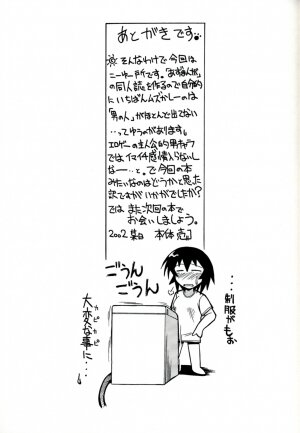 あとがきです。
そんなわけで今回は
ニーゆー所です。「あずまんが」
の同人誌を作るので自分的
にいちばんムズかしーのは
「男の人」がほとんど出てない
…ってゆうのがあります。
エロゲーの主人公的男キャラ
ではイマイチ感情入らないし
なー…と。で今回の本
みたいなのはどうかと思った
訳ですがいかがでしたか?
ではまた次回の本で
お会いしましょう。
2002 某日 本体売]
ごうん
ごうん
…制服がもお
大変な事に…
カピカピ